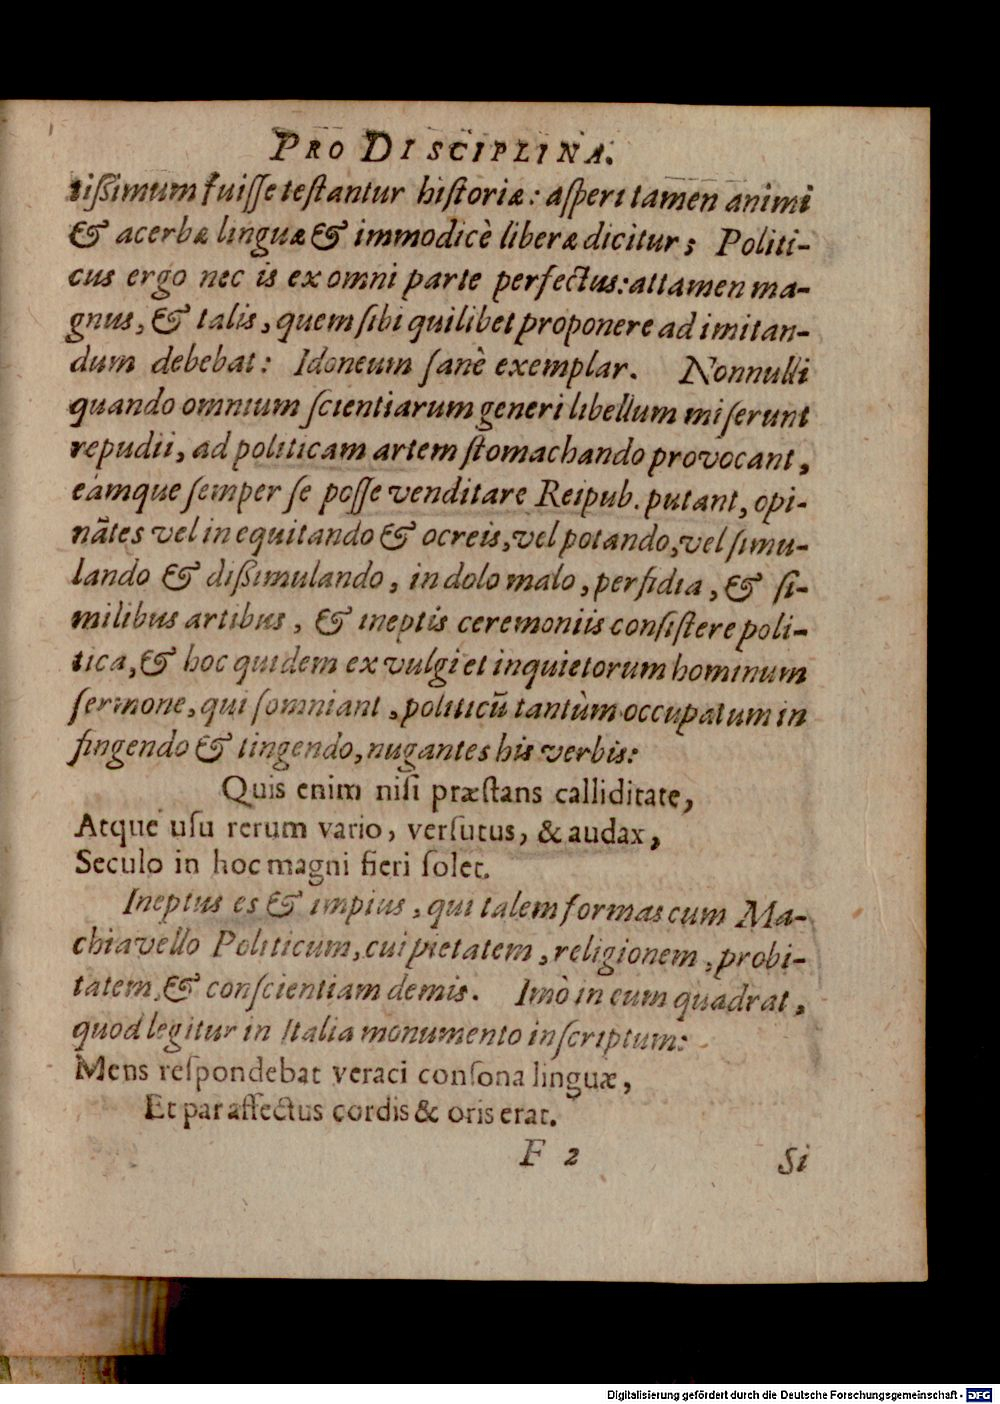 PRO DISCIPLINA.
tißimum fuiſſe teſtantur hiſtoriæ: aſperi tamen animi
& acerbæ linguæ & immodicè liberæ dicitur; Politi-
cus ergo nec is ex omni parte perfectus: attamen ma-
gnus, & talis, quem ſibi quilibet proponere ad imitan-
dum debebat: Idoneum ſanè exemplar. Nonnulli
quando omnium ſcientiarum generi libellum miſerunt
repudii, ad politicam artem ſtomachando provocant,
eamque ſemper ſe poſſe venditare Reipub. putant, opi-
nãtes vel in equitando & ocreis, vel potando, vel ſimu-
lando & dißimulando, in dolo malo, perfidia, & ſi-
milibus artibus, & ineptis ceremoniis conſiſtere poli-
tica, & hoc quidem ex vulgi et inquietorum hominum
ſermone, qui ſomniant, politicũ tantùm occupatum in
fingendo & tingendo, nugantes his verbis:
Quis enim niſi præſtans calliditate,
Atque uſu rerum vario, verſutus, & audax,
Seculo in hoc magni fieri ſolet.
Ineptus es & impius, qui talem formas cum Ma-
chiavello Politicum, cui pietatem, religionem, probi-
tatem, & conſcientiam demis. Imò in eum quadrat,
quod legitur in Italia monumento inſcriptum:
Mens reſpondebat veraci conſona linguæ,
Et par affectus cordis & oris erat.
F 2 Si
Digitalisierung gefördert durch die Deutsche Forschungsgemeinschaft - DFG